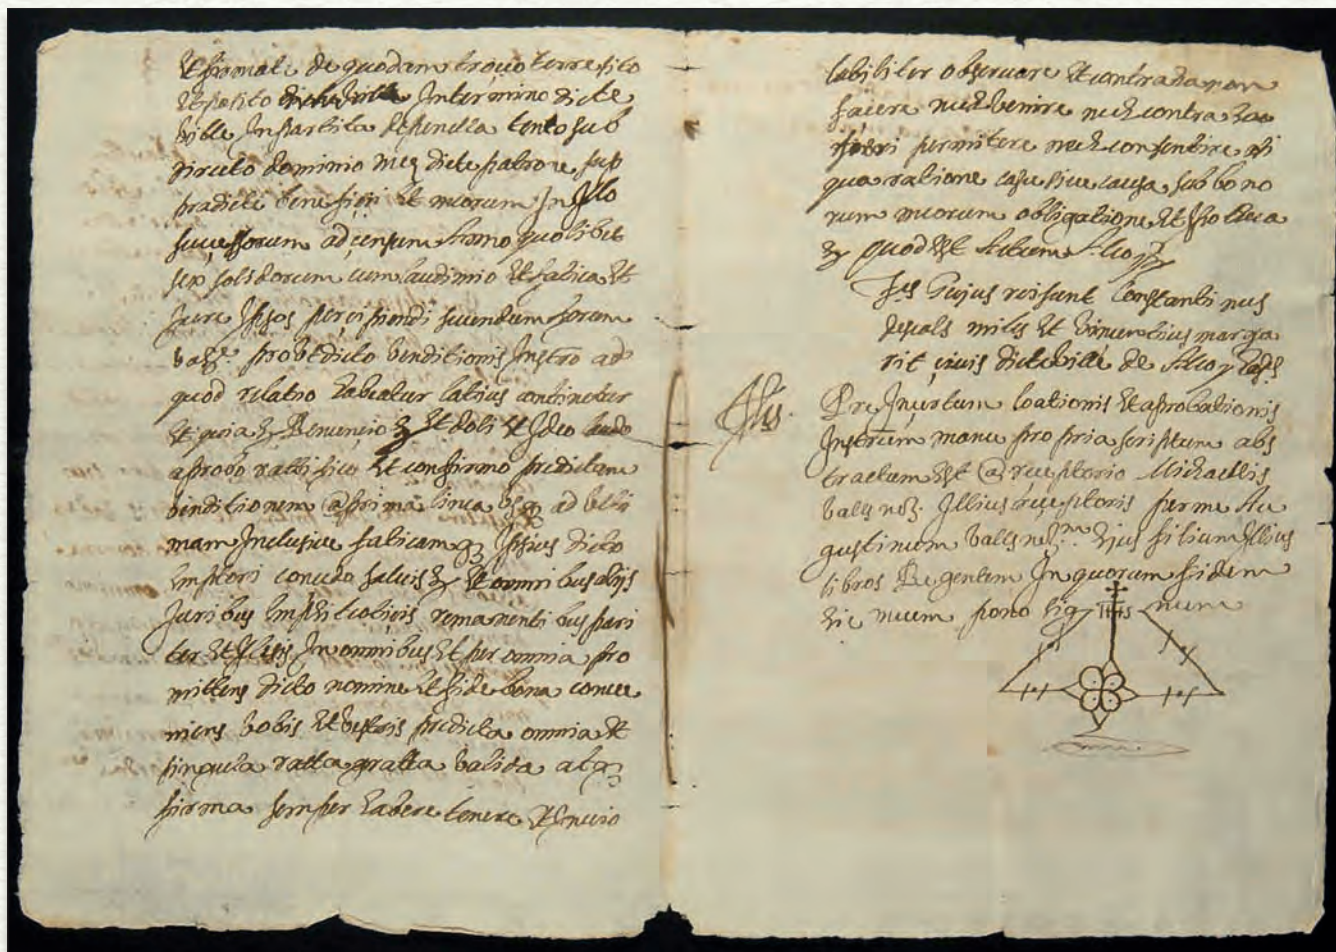 et firmati de quodam troço terre sito
et posito in termino dicte
ville in partita de penella tento sub
directo dominio meq dicte patrone sup
pradicti beneficii et meorum in illo
successorum ad censum anno quolibet
sex solidorum cum laudimio et fatica et
jure ipsos percipiendi secundum forum
valᵉ. pro ut dicto venditionis instro ad
quod relatio habeatur latius continetur
et quia &ᵃ Renuncio &ᵃ et doli et ideo laudo
aprobo rattifico et confirmo predictam
venditionem @ prima linea usq3 ad ulti
mam inclusive faticamq3 ipsius dicto
emptori concedo salvis &ᵃ et omnibus aliis
juribus emphiteoticis remanentibus pari
ter et illesis in omnibus et per omnia pro
mittens dicto nomine et fide bona conve
niens vobis et vestris predicta omnia et
singula ratta gratta valida atq3
firma semper habere tenere et invio
labiliter observare et contra ea non
facere nec venire nec contra ea
fieri permitere nec consentire ali
qua ratione casu sive causa sub bono
rum meorum obligatione et ipotheca
&ᵃ quod est actum Alcoy &ᵃ
Tes hujus rei sunt Constantinus
despals miles et Vincentius marga
rit civis dicte ville de Alcoy habs
Pre insertum loationis et aprobationis
instrum manu propria scriptum abs
tractum est @ receptorio Michaelis
valls noṫ. illius receptoris per me Au
gustinum valls noṫ.ᵐ ejus filium illius
libros Regentem in quorum fidem
hic meum pono sig num